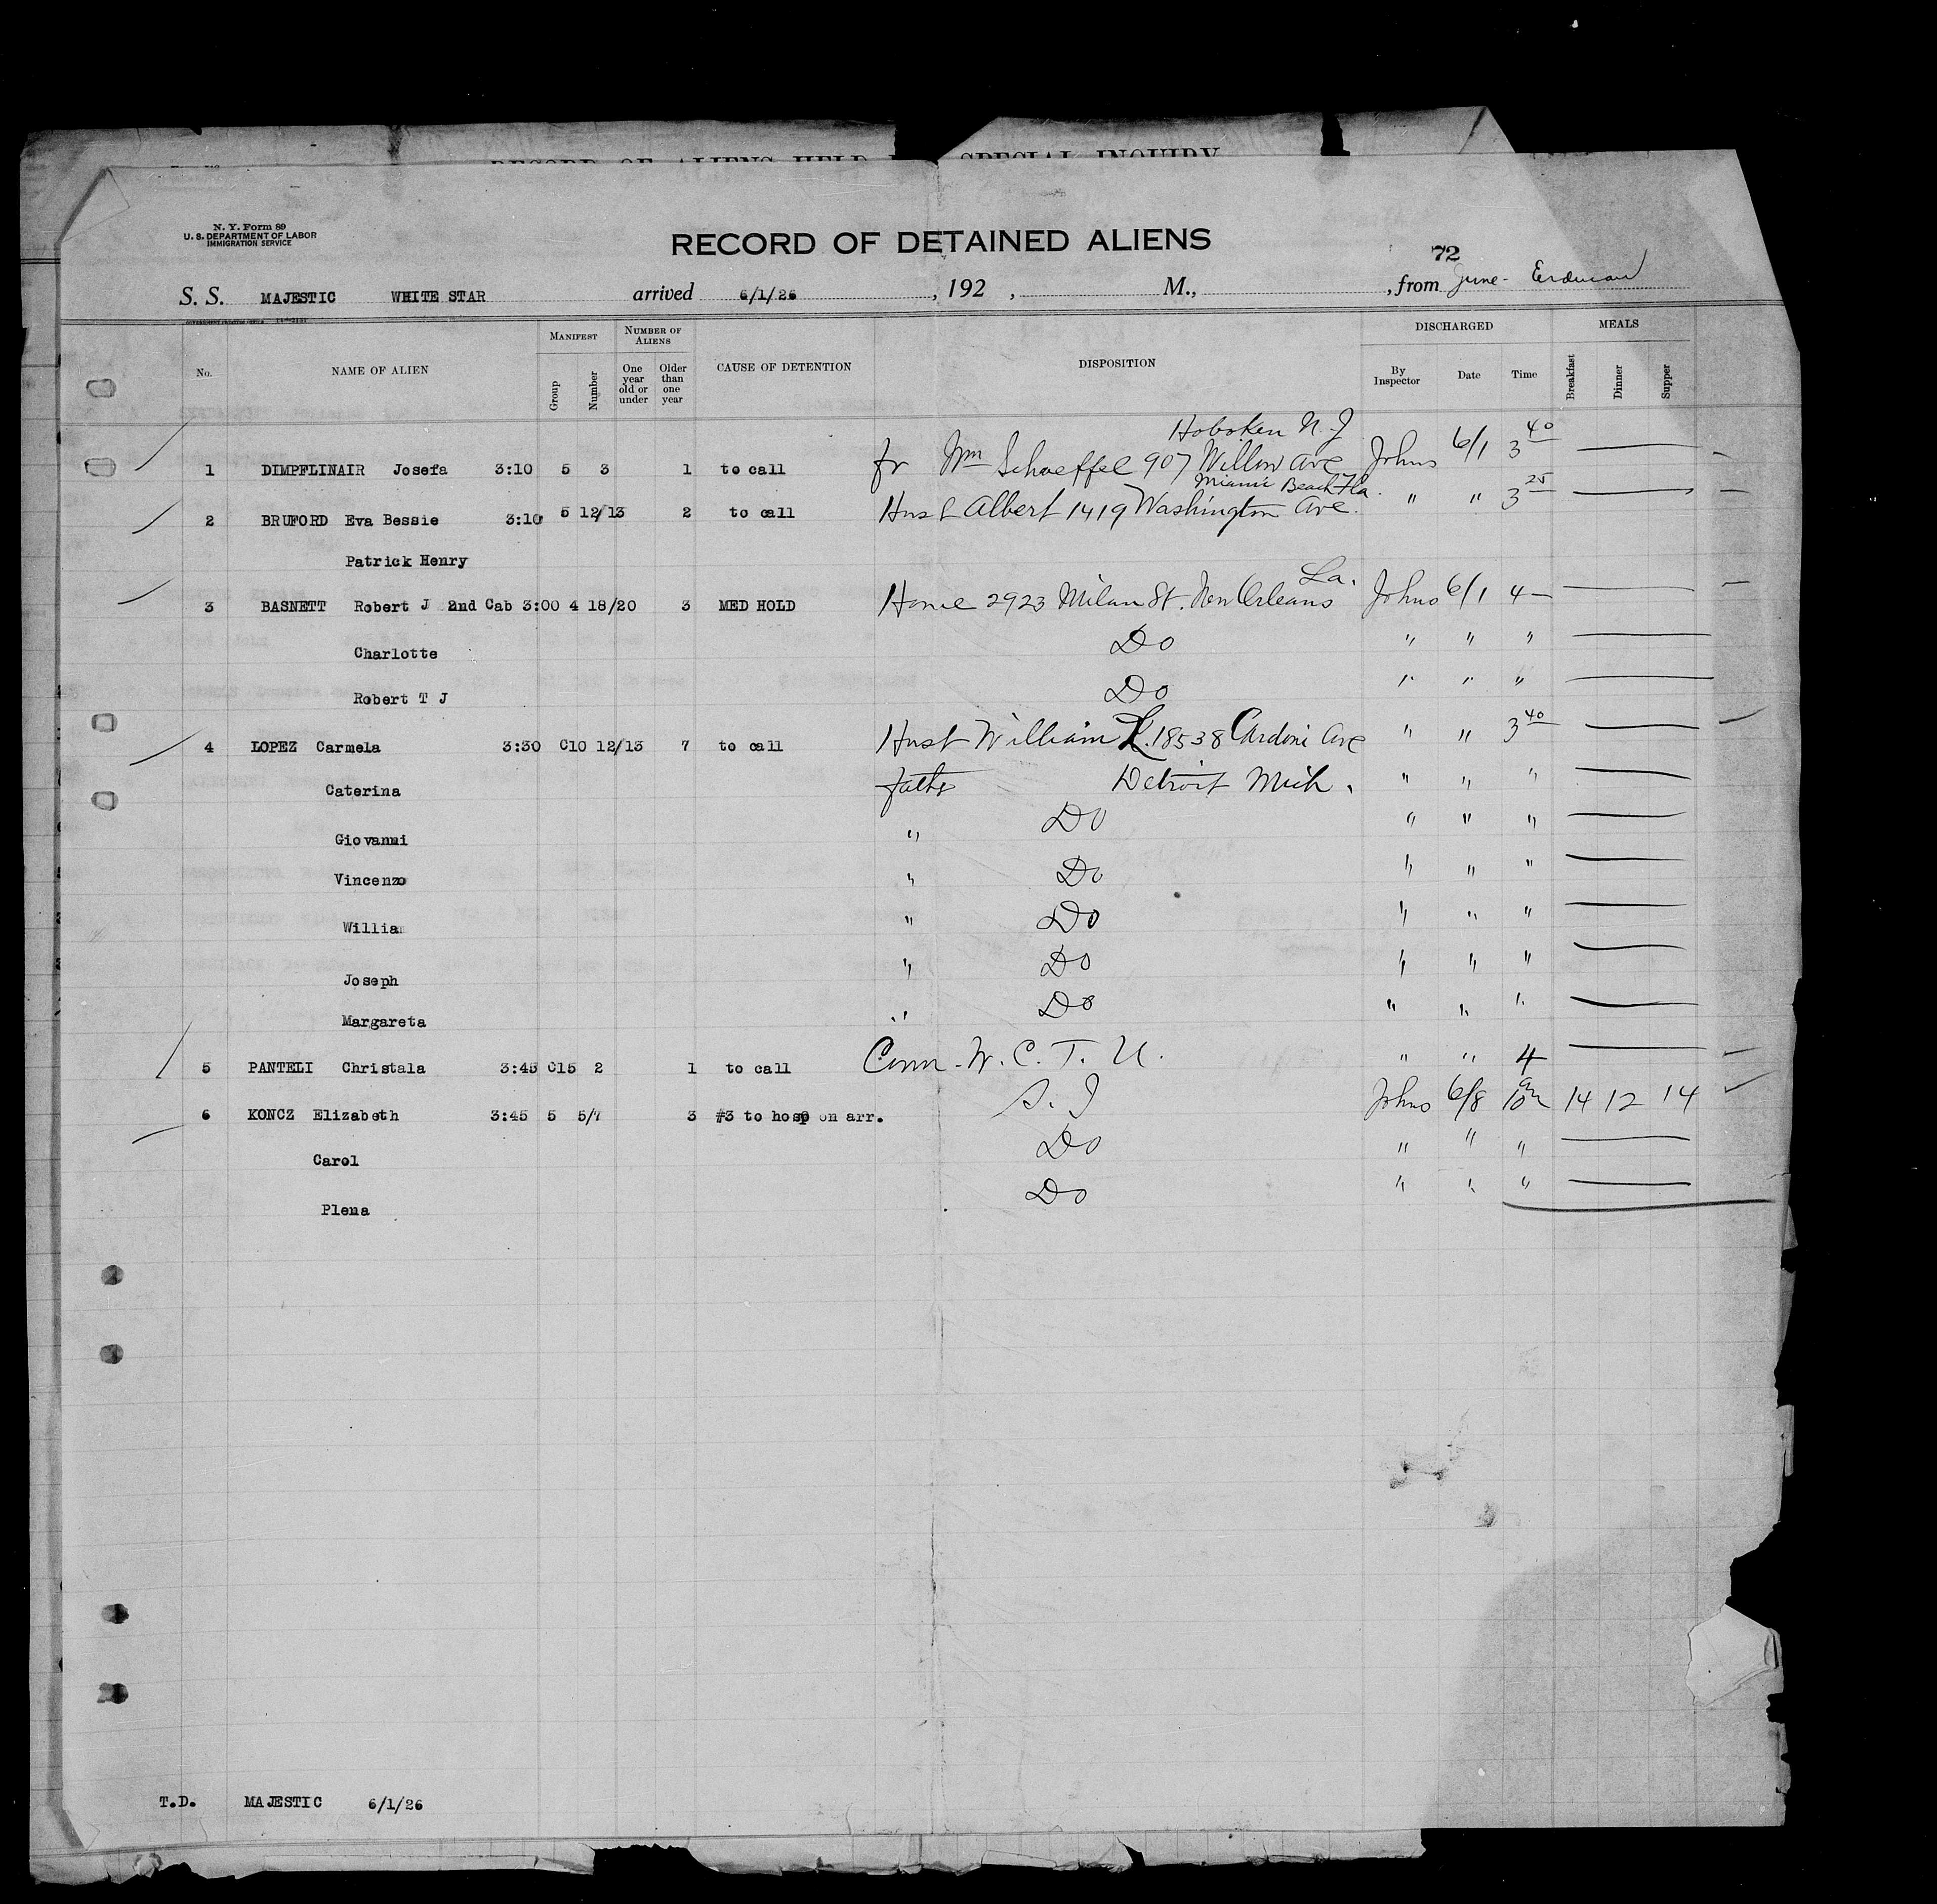 RECORD OF ALIENS HELD SPECIAL INQUIRY
N. Y. Form 89
U. S. DEPARTMENT OF LABOR
IMMIGRATION SERVICE
RECORD OF DETAINED ALIENS
72
S. S. MAJESTIC WHITE STAR arrived 6/1/26 , 192 , M., , from June - Erdman
No. NAME OF ALIEN MANIFEST Group Number NUMBER OF ALIENS One year old or under Older than one year CAUSE OF DETENTION DISPOSITION DISCHARGED By Inspector Date Time MEALS Breakfast Dinner Supper
Hoboken N. J
1 DIMPFLINAIR Josefa 3:10 5 3 1 to call fr Wm Schaeffel 907 Willow Ave Johns 6/1 3 40
Miami Beach Fla.
2 BRUFORD Eva Bessie 3:10 5 12/13 2 to call Husb Albert 1419 Washington Ave. " " 3 25
Patrick Henry
La.
3 BASNETT Robert J 2nd Cab 3:00 4 18/20 3 MED HOLD Home 2923 Milan St. New Orleans Johns 6/1 4 —
Charlotte Do " " "
Robert T J Do " " "
4 LOPEZ Carmela 3:30 C10 12/13 7 to call Husb William L. 18538 Cardoni Ave " " 3 40
Caterina father Detroit Mich. " " "
Giovanni " Do " " "
Vincenzo " Do " " "
Willia " Do " " "
Joseph " Do " " "
Margareta " Do " " "
5 PANTELI Christala 3:45 C15 2 1 to call Conn. W. C. T. U. " " 4
6 KONCZ Elizabeth 3:45 5 5/7 3 #3 to hosp on arr. S. I Johns 6/8 10 am 14 12 14
Carol Do " " "
Plena Do " " "
T.D. MAJESTIC 6/1/26